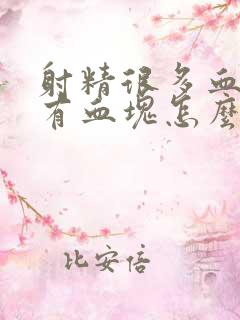 射精很多血
有血塊怎麼
比安倍